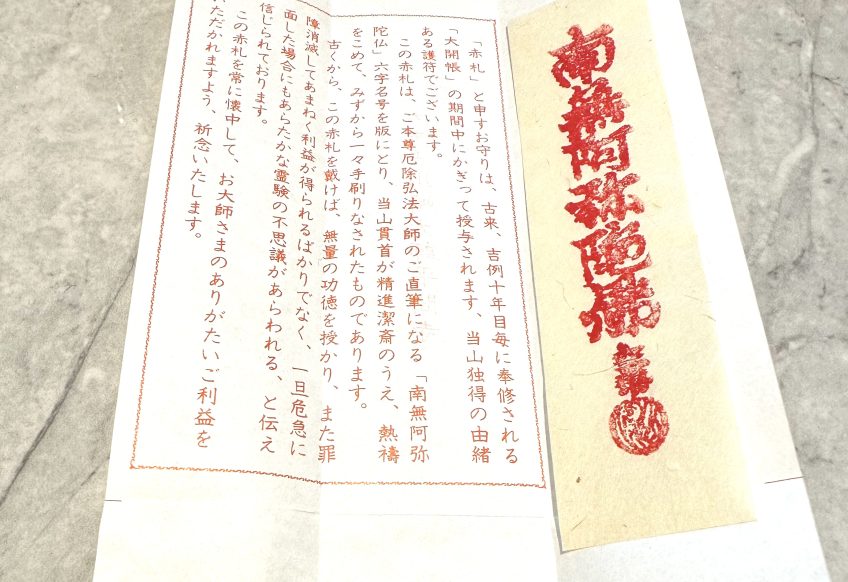 南無阿弥陀佛
「赤札」と申すお守りは、古来、吉例十年目毎に奉修される
「大開帳」の期間中にかぎって授与されます、当山独得の由緒
ある護符でございます。
この赤札は、ご本尊厄除弘法大師のご直筆になる「南無阿弥
陀仏」六字名号を版にとり、当山貫首が精進潔斎のうえ、熱禱
をこめて、みずから一々手刷りなされたものであります。
古くから、この赤札を戴けば、無量の功徳を授かり、また罪
障消滅してあまねく利益が得られるばかりでなく、一旦危急に
面した場合にもあらたかな霊験の不思議があらわれる、と伝え
信じられております。
この赤札を常に懐中して、お大師さまのありがたいご利益を
いただかれますよう、祈念いたします。